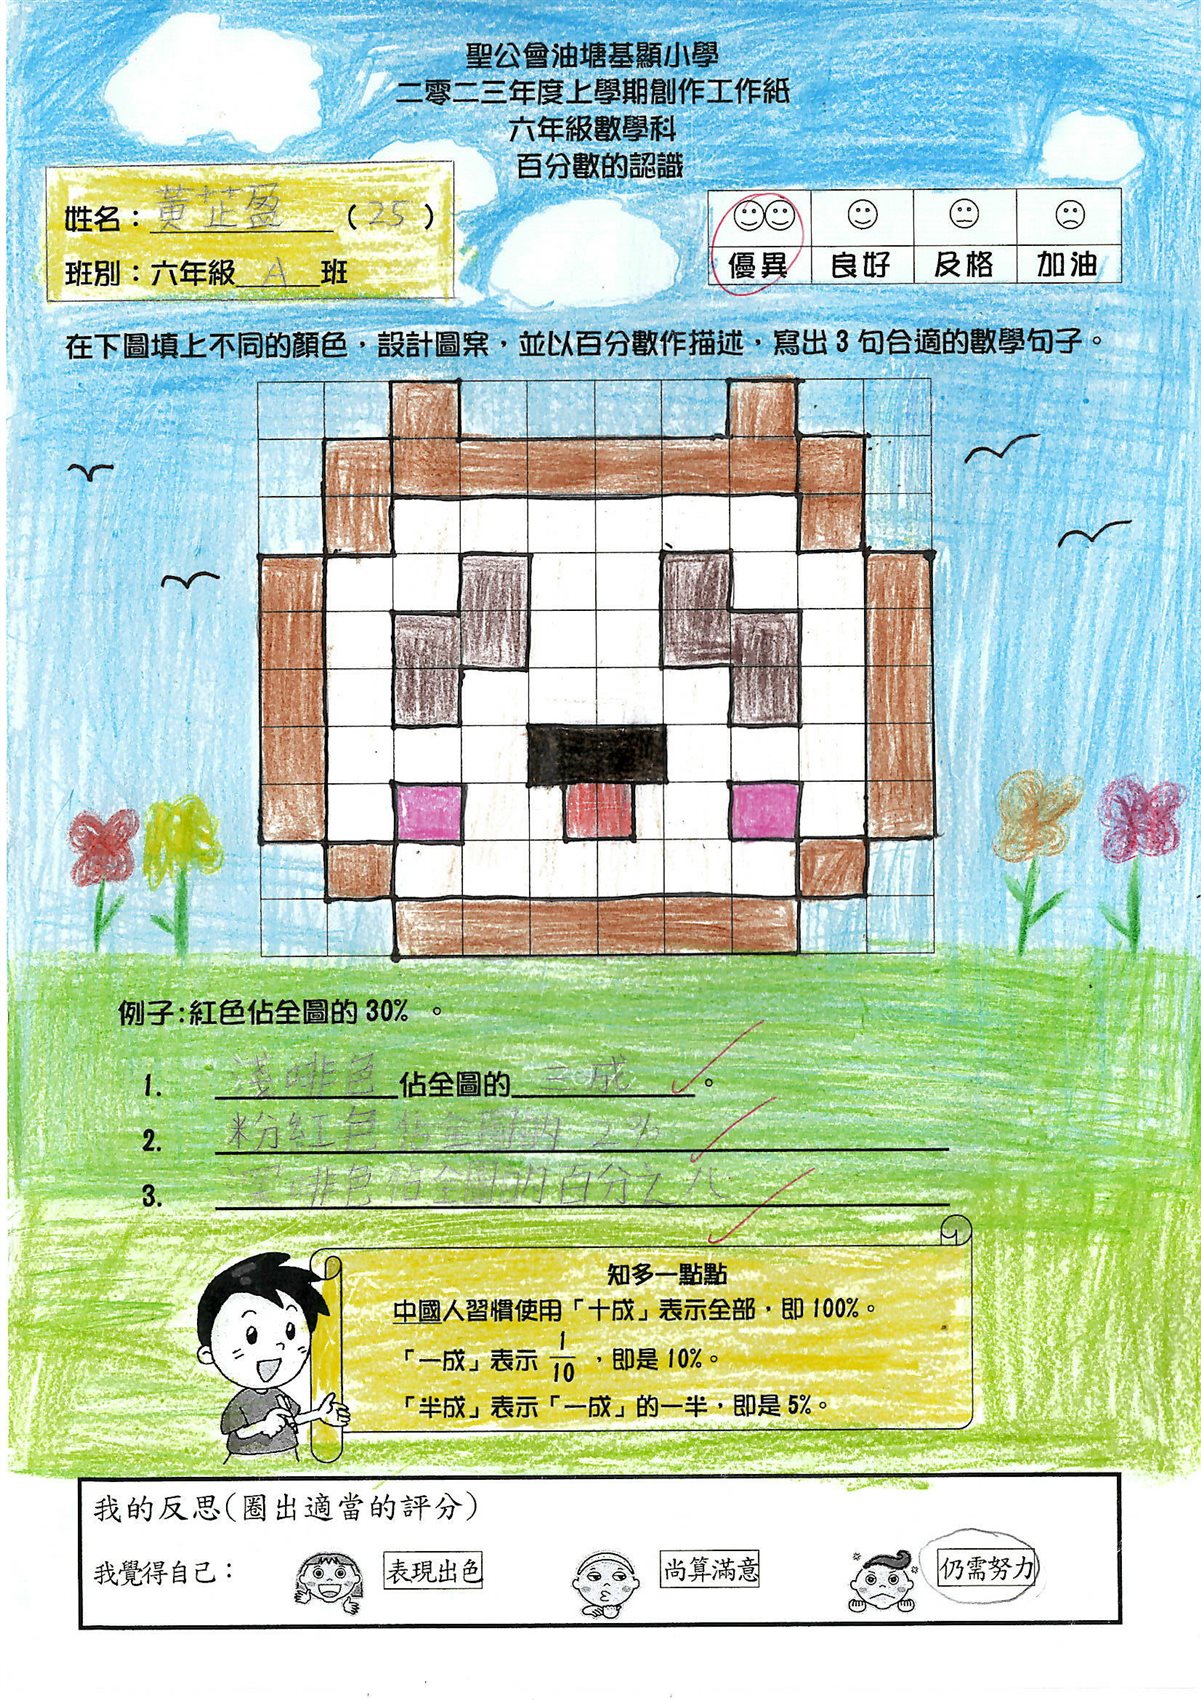 聖公會油塘基顯小學
二零二三年度上學期創作工作紙
六年級數學科
百分數的認識
姓名：黃芷盈（25）
班別：六年級 A 班
優異 良好 及格 加油
在下圖填上不同的顏色，設計圖案，並以百分數作描述，寫出 3 句合適的數學句子。
例子:紅色佔全圖的 30% 。
1. 淺啡色佔全圖的三成。
2. 粉紅色佔全圖的 2%
3. 深啡色佔全圖的百分之八
知多一點點
中國人習慣使用「十成」表示全部，即 100%。
「一成」表示 1/10 ，即是 10%。
「半成」表示「一成」的一半，即是 5%。
我的反思(圈出適當的評分)
我覺得自己： 表現出色 尚算滿意 仍需努力